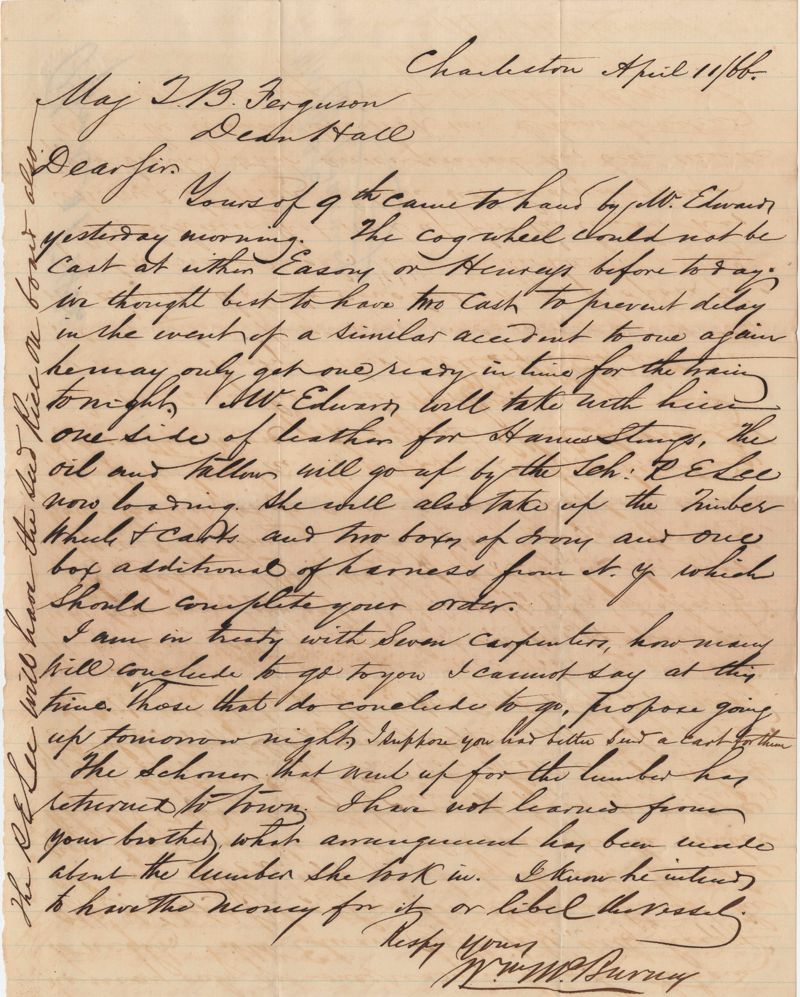 Charleston April 11/66.
Maj T. B. Ferguson
Dean Hall
Dear Sir.
Yours of 9th came to hand by Mr. Edwards
yesterday morning. The cog wheel could not be
cast at either Easons or Henreys before to day.
we thought best to have two cast, to prevent delay
in the event of a similar accident to one again
he may only get one ready in time for the train
to night. Mr. Edwards will take with him
one side of leather for Hames Strings, The
oil and tallow will go up by the Sch: R E Lee
now loading. She will also take up the Timber
Wheels & carts and two boxes of Irons and one
box additional of harness from N. Y which
should complete your order.
I am in treaty with Seven carpenters, how many
will conclude to go to you I cannot say at this
time. Those that do conclude to go, propose going
up tomorrow night. I suppose you had better send a cart for them
The Schoner that went up for the lumber has
returned to town. I have not learned from
your brother, what arrangement has been made
about the lumber she took in. I know he intends
to have the money for it or libel the vessel.
Respy yours
Wm McBurney
The R E Lee will have the seed Rice on board also